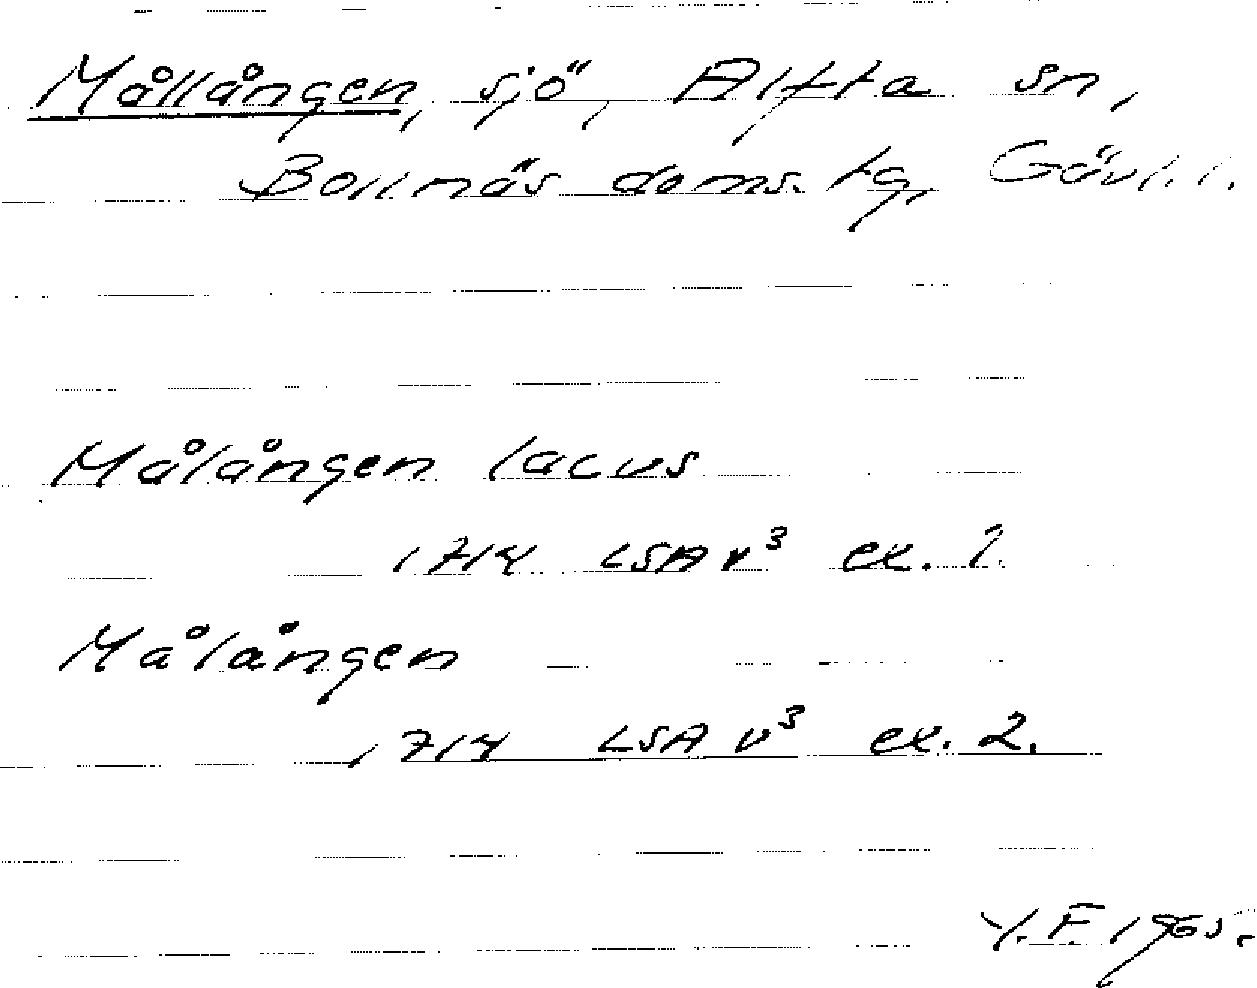 Mållången, sjö, Alfta sn,
Bollnäs doms. tg, Gävl. l.
Målången lacus
1714 LSA v³ ex. 1.
Målången
1714 LSA v³ ex. 2.
Y. F. 1965.